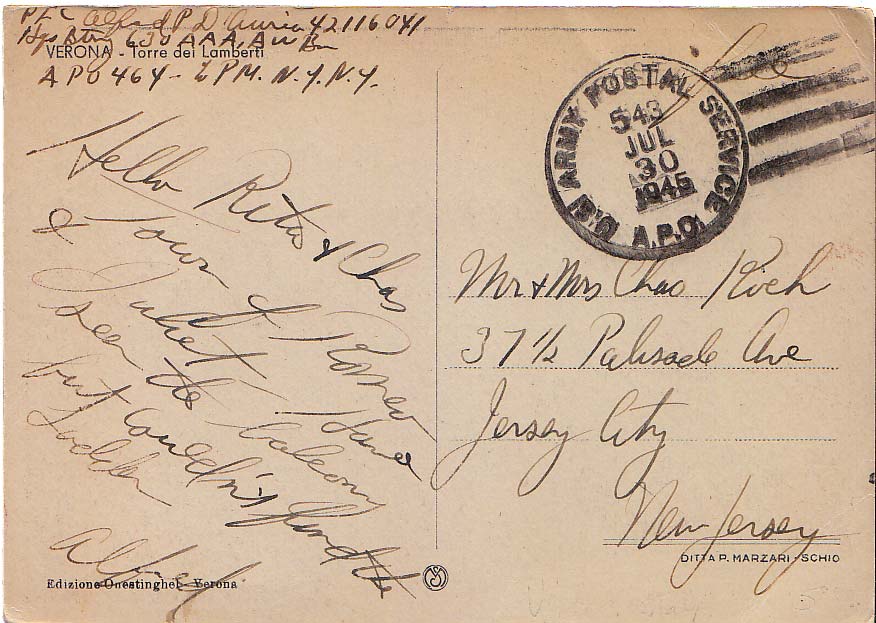 Pfc Alfred P. D'Auria 42116041
Hqs Btry 630 AAA, AW Bn
VERONA - Torre dei Lamberti
APO 464 - % PM. N.Y. N.Y.
Hello Rita & Chas
Town of Romeo
& Juliet. Have
seen the balcony
but couldn't find the
ladder
Alfred
Edizione Onestinghel - Verona
Free
U.S. ARMY POSTAL SERVICE
543
JUL
30
1945
A.P.O.
Mr & Mrs Chas Rich
37 1/2 Palisade Ave
Jersey City
New Jersey
DITTA P. MARZARI - SCHIO